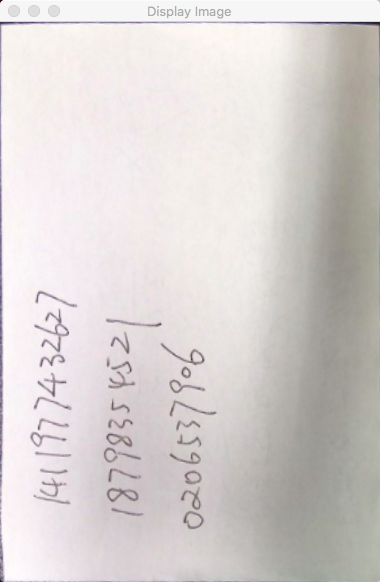 Display Image
1411977432627
18798354521
0206537906